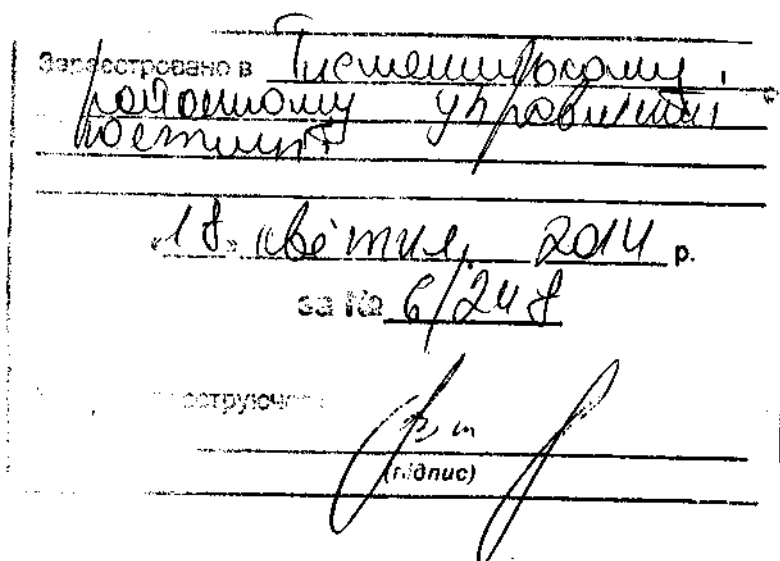 Зареєстровано в Тисменицькому
районному управлінні
юстиції
«18» квітня 2014 р.
за № 6/248
(підпис)